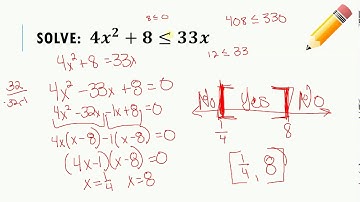 8 ≤ 0
408 ≤ 330
SOLVE: 4x² + 8 ≤ 33x
12 ≤ 33
4x² + 8 = 33x
32
-32 -1
4x² - 33x + 8 = 0
4x² - 32x - 1x + 8 = 0
4x(x - 8) - 1(x - 8) = 0
(4x - 1)(x - 8) = 0
x = 1/4 x = 8
No [ Yes ] No
1/4 8
[1/4, 8]